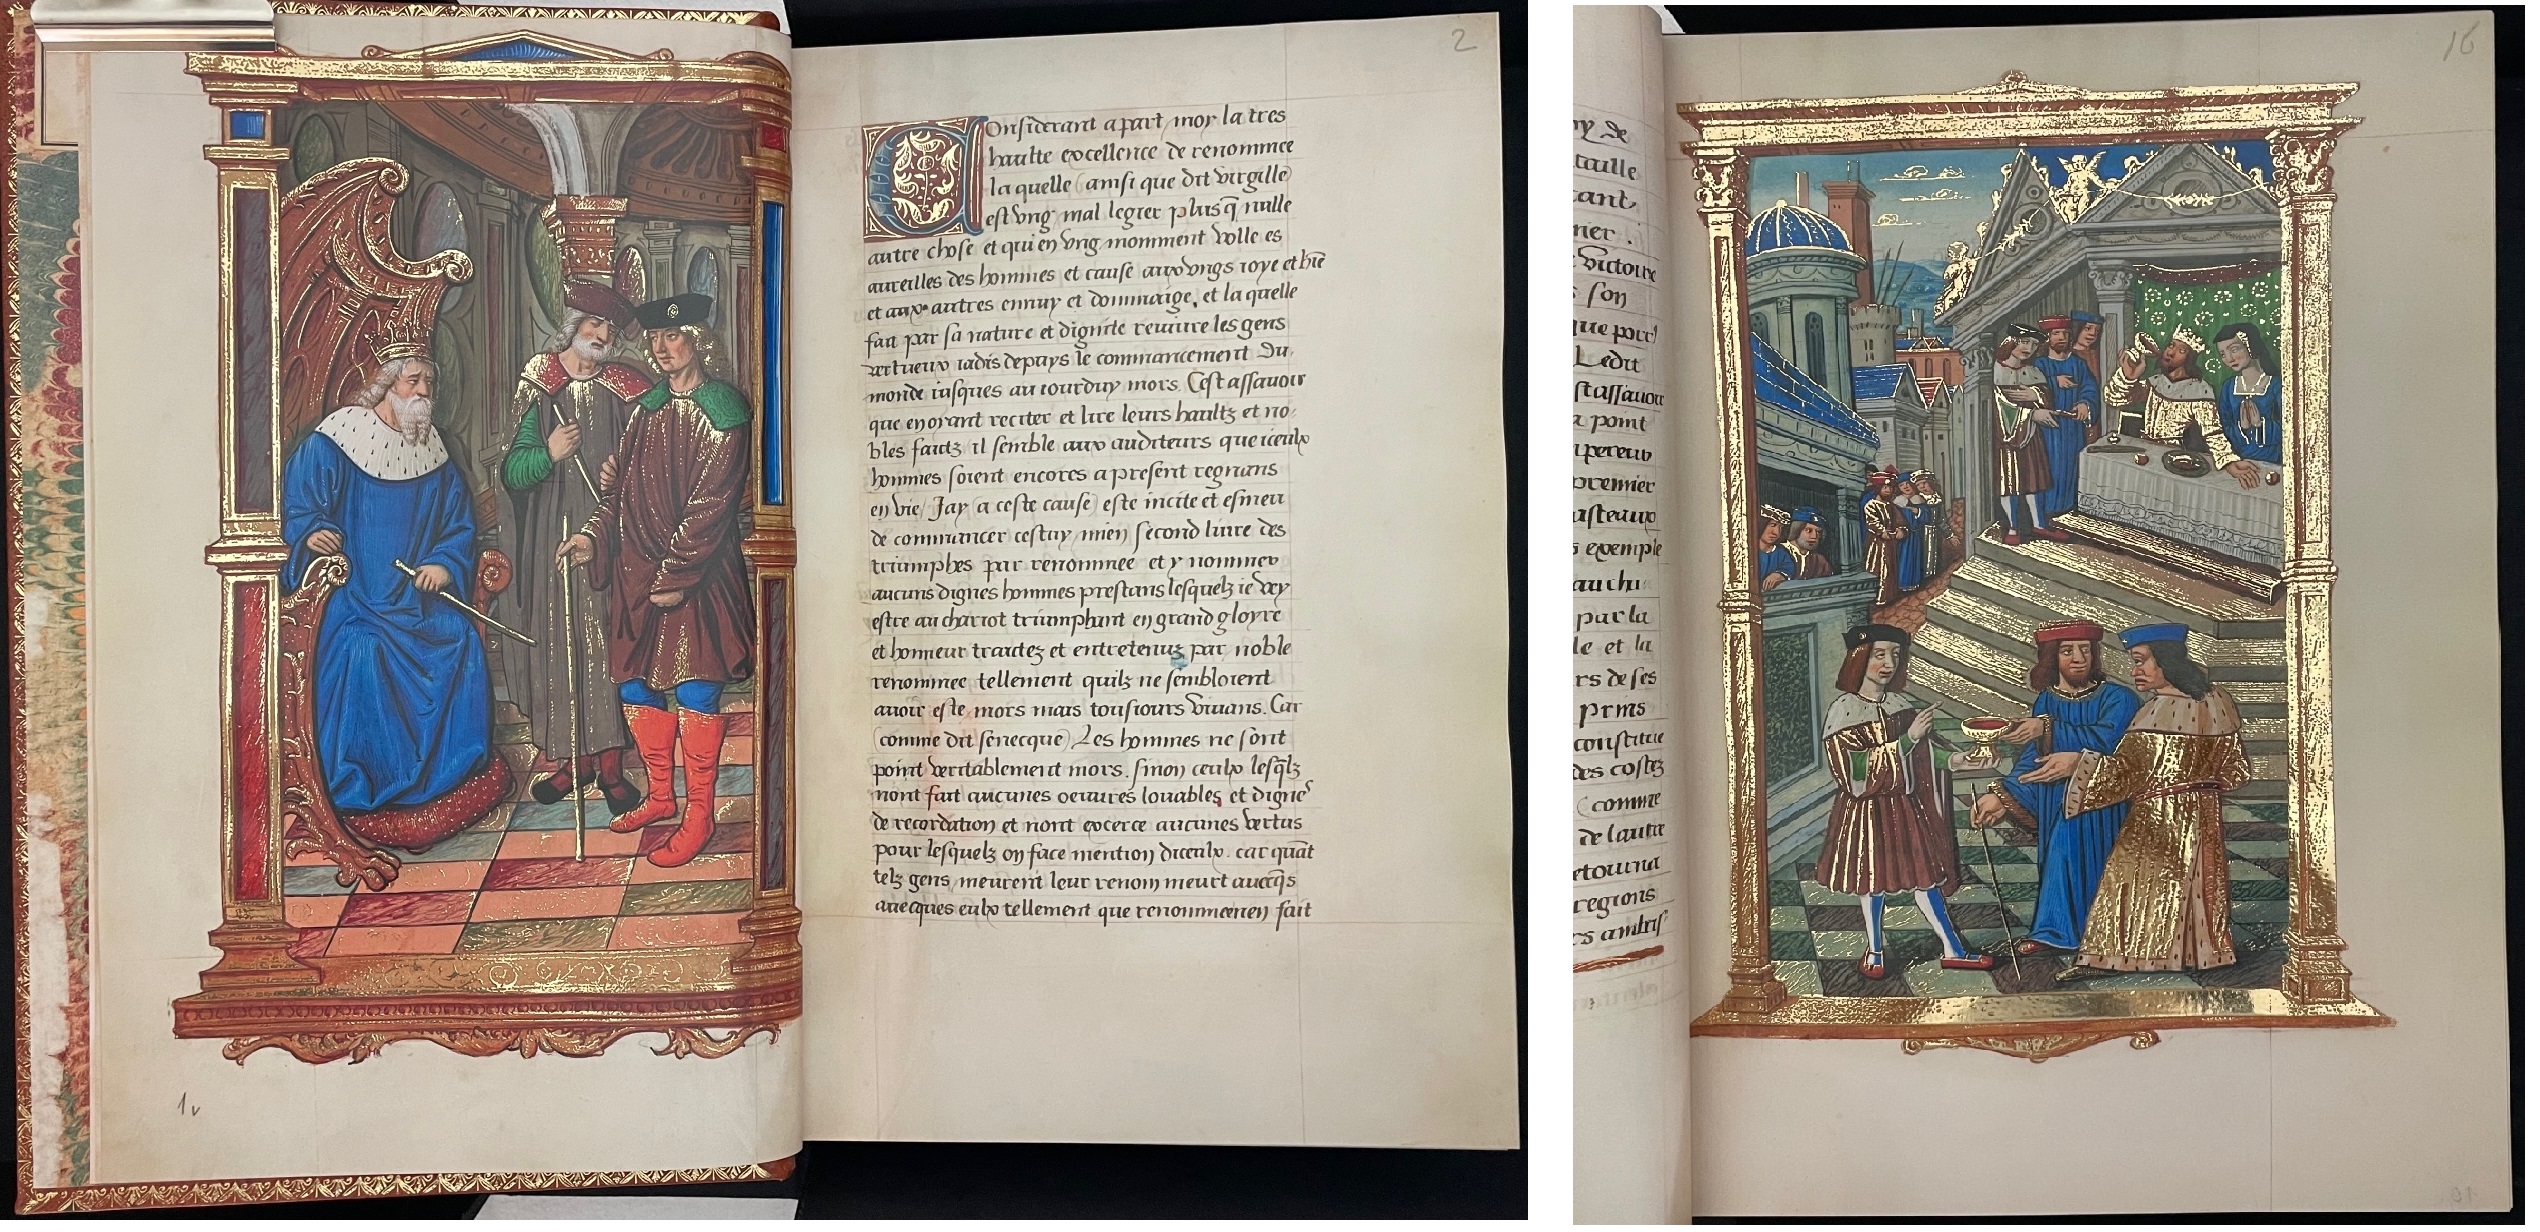 2
Considerant apart moy la tres
haulte excellence de renommee
la quelle (ainsi que dit virgille)
est vng mal legier plus q̃ nulle
autre chose et qui en vng momment volle es
aureilles des hommes et cause aux vngs ioye et biẽ
et aux autres ennuy et dommaige, et la quelle
fait par sa nature et dignite reuiure les gens
vertueux iadis depuys le commancement du
monde iusques auiourduy mors. Cest assauoir
que en oyant reciter et lire leurs haultz et no
bles faictz il semble aux auditeurs que iceulx
hommes soient encores a present regnans
en vie / Jay (a ceste cause) este incite et esmeu
de commancer cestuy mien second liure des
triumphes par renommee et y nommer
aucuns dignes hommes prestans lesquelz ie vey
estre au chariot triumphant en grand gloyre
et honneur traictez et entretenuz par noble
renommee tellement quilz ne sembloient
auoir este mors mais tousiours viuans. Car
(comme dit senecque) Les hommes ne sont
point veritablement mors. sinon ceulx lesq̃lz
nont fait aucunes oeuures louables et dignes
de recordation et nont exerce aucunes vertus
pour lesquelz on face mention diceulx. car quãt
telz gens meurent leur renom meurt auecq̃s
auecques eulx tellement que renommee nen fait
1v
16
ny de
taille
tant
nier.
victoire
son
que porel
Ledit
stassauoir
a point
upereur
premier
asteaux
s exemple
auchu
par la
le et la
rs de ses
prins
constitue
des costez
(comme
de lautre
etourna
regions
rs ambis